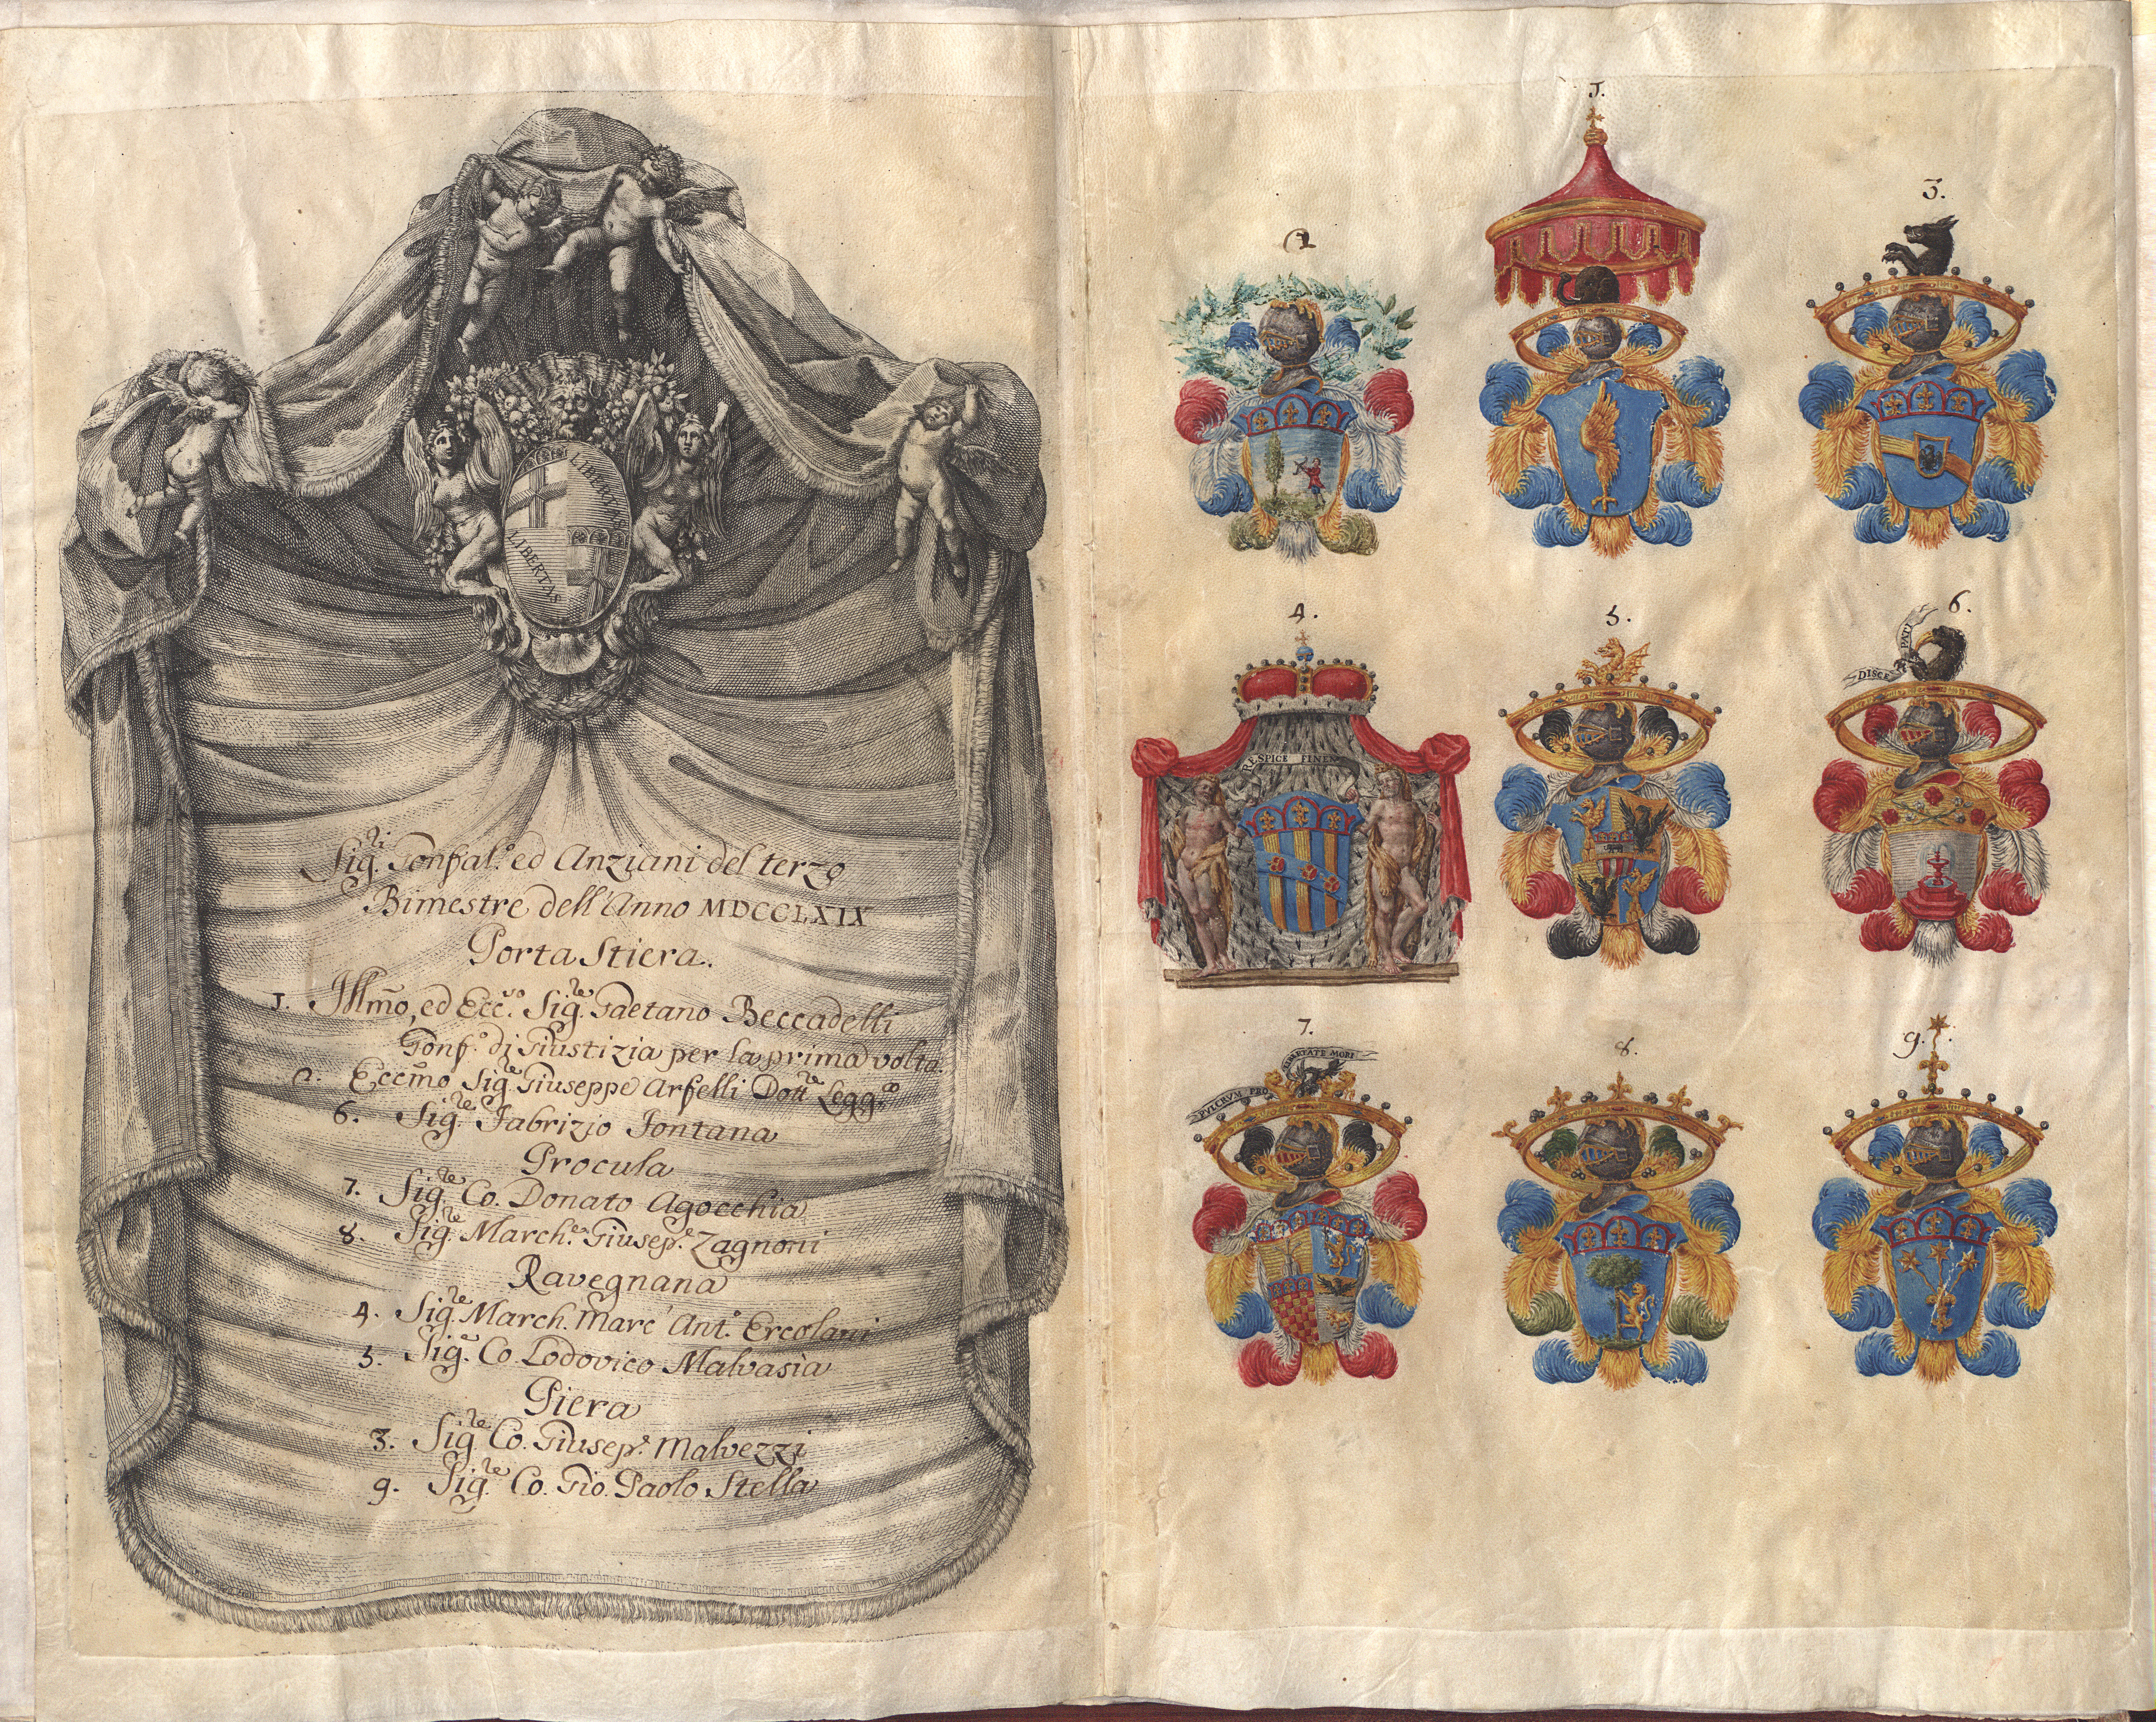 LIBERTAS
LIBERTAS
Sig.ri Gonfal.e ed Anziani del terzo
Bimestre dell'Anno MDCCLXIX
Porta Stiera.
1. Illmo, ed Ecc.vo Sig.re Gaetano Beccadelli
Gonf.e di Giustizia per la prima volta.
2. Eccmo Sig.re Giuseppe Arfelli Dott.re Legg.
6. Sig.re Fabrizio Fontana
Procula
7. Sig.re Co. Donato Agocchia
8. Sig.re March.e Giusep.e Zagnoni
Ravegnana
4. Sig.re March. Marc' Ant.o Ercolani
5. Sig.e Co. Lodovico Malvasia
Piera
3. Sig.re Co. Giusep.e Malvezzi
9. Sig.re Co. Gio. Paolo Stella
1.
2
3.
4.
RESPICE FINEM
5.
6.
DISCE PATI
7.
PVLCRVM PRO LIBERTATE MORI
8.
9.